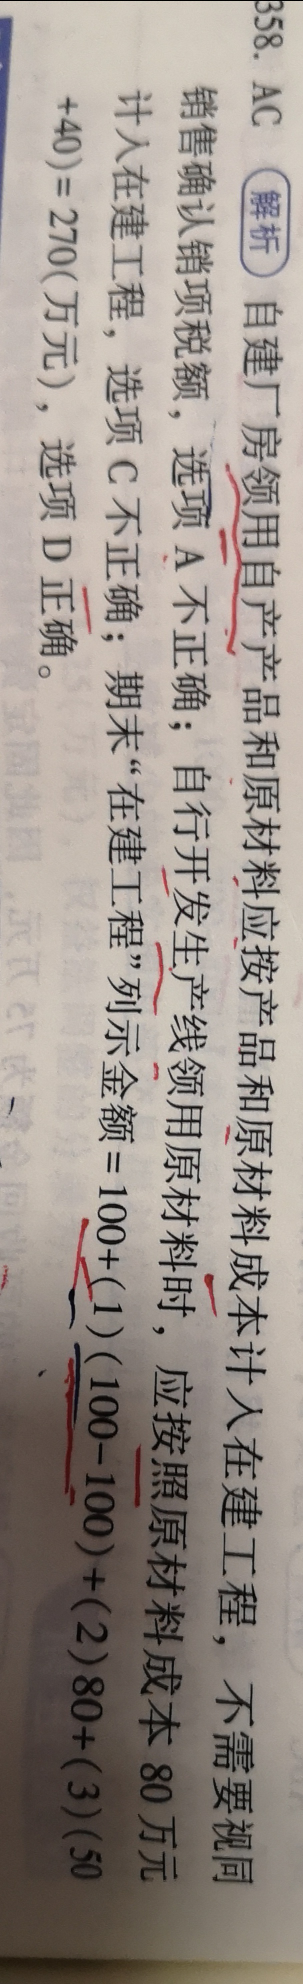 358. AC 解析 自建厂房领用自产产品和原材料应按产品和原材料成本计入在建工程，不需要视同
销售确认销项税额，选项 A 不正确；自行开发生产线领用原材料时，应按照原材料成本 80 万元
计入在建工程，选项 C 不正确；期末“在建工程”列示金额=100+(1)(100-100)+(2)80+(3)(50
+40)=270(万元)，选项 D 正确。